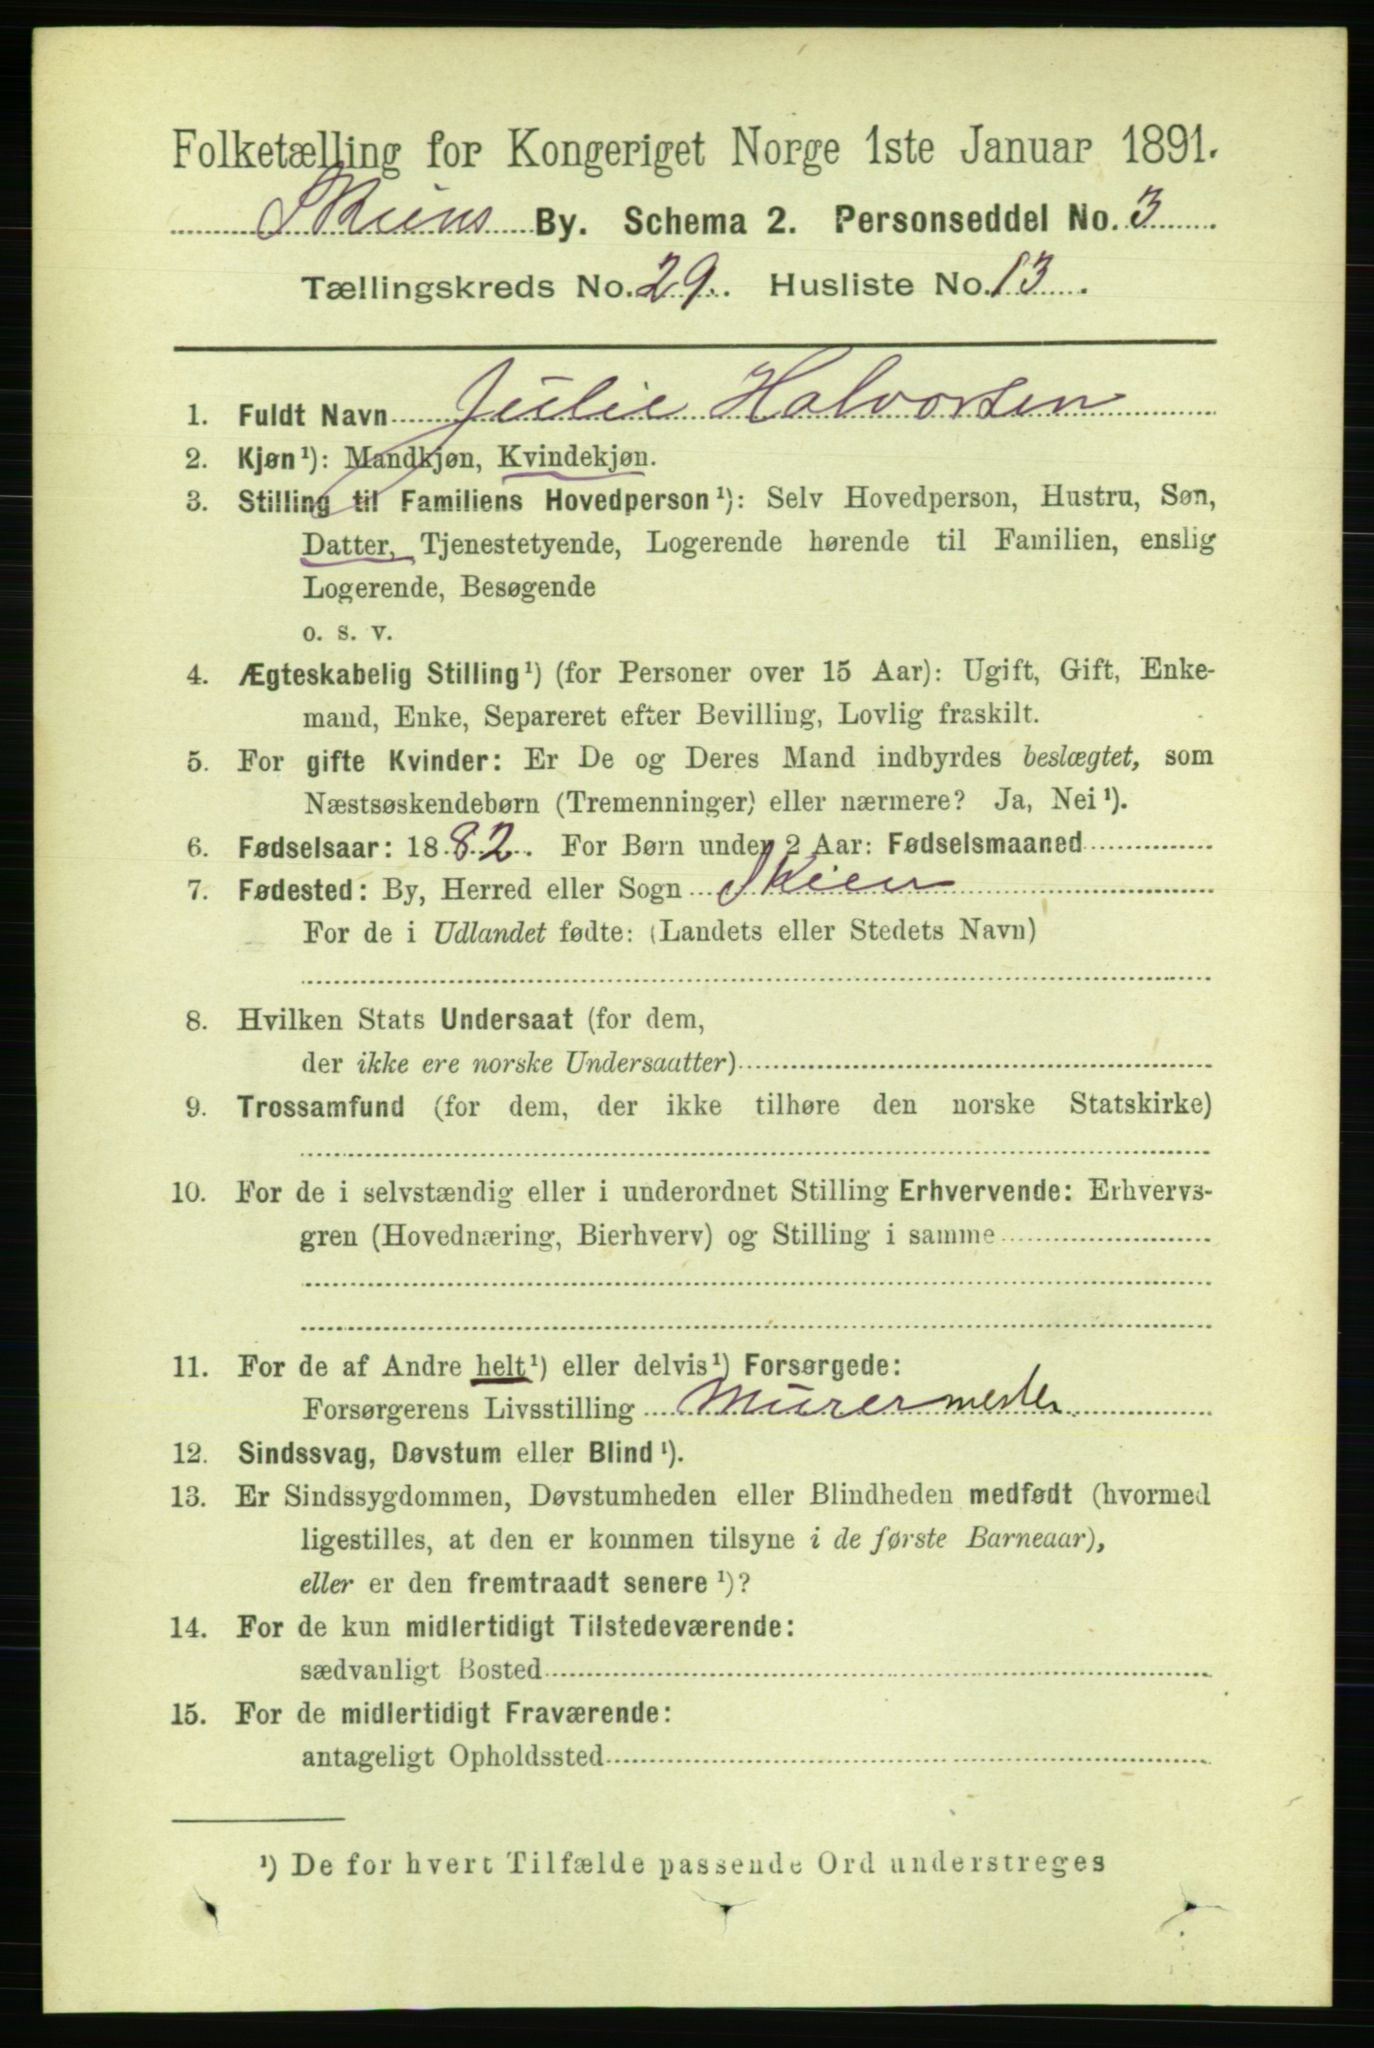 Folketælling for Kongeriget Norge 1ste Januar 1891.
Skiens By. Schema 2. Personseddel No. 3
Tællingskreds No. 29. Husliste No. 13.
1. Fuldt Navn Julie Halvorsen
2. Kjøn¹): Mandkjøn, Kvindekjøn.
3. Stilling til Familiens Hovedperson¹): Selv Hovedperson, Hustru, Søn,
Datter, Tjenestetyende, Logerende hørende til Familien, enslig
Logerende, Besøgende
o. s. v.
4. Ægteskabelig Stilling¹) (for Personer over 15 Aar): Ugift, Gift, Enke-
mand, Enke, Separeret efter Bevilling, Lovlig fraskilt.
5. For gifte Kvinder: Er De og Deres Mand indbyrdes beslægtet, som
Næstsøskendebørn (Tremenninger) eller nærmere? Ja, Nei¹).
6. Fødselsaar: 1882. For Børn under 2 Aar: Fødselsmaaned
7. Fødested: By, Herred eller Sogn Skien
For de i Udlandet fødte: (Landets eller Stedets Navn)
8. Hvilken Stats Undersaat (for dem,
der ikke ere norske Undersaatter)
9. Trossamfund (for dem, der ikke tilhøre den norske Statskirke)
10. For de i selvstændig eller i underordnet Stilling Erhvervende: Erhvervs-
gren (Hovednæring, Bierhverv) og Stilling i samme
11. For de af Andre helt¹) eller delvis¹) Forsørgede:
Forsørgerens Livsstilling Murermester
12. Sindssvag, Døvstum eller Blind¹).
13. Er Sindssygdommen, Døvstumheden eller Blindheden medfødt (hvormed
ligestilles, at den er kommen tilsyne i de første Barneaar),
eller er den fremtraadt senere¹)?
14. For de kun midlertidigt Tilstedeværende:
sædvanligt Bosted
15. For de midlertidigt Fraværende:
antageligt Opholdssted
¹) De for hvert Tilfælde passende Ord understreges